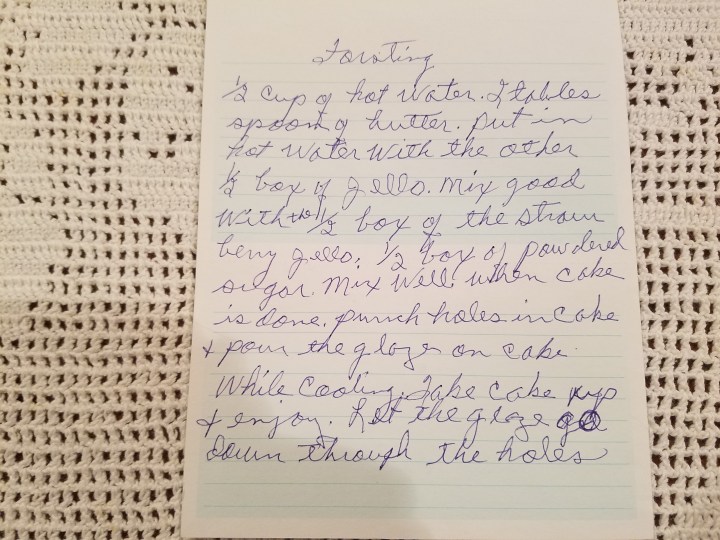 Forsting
1/2 cup of hot water. 2 tables
spoon of butter. put in
hot water with the other
1/2 box of jello. Mix good
with the 1/2 box of the straw
berry jello. 1/2 box of powdered
sugar. Mix well. when cake
is done. punch holes in cake
+ pour the glaze on cake.
While cooling. Take cake up
+ enjoy. Let the glaze go
down through the holes